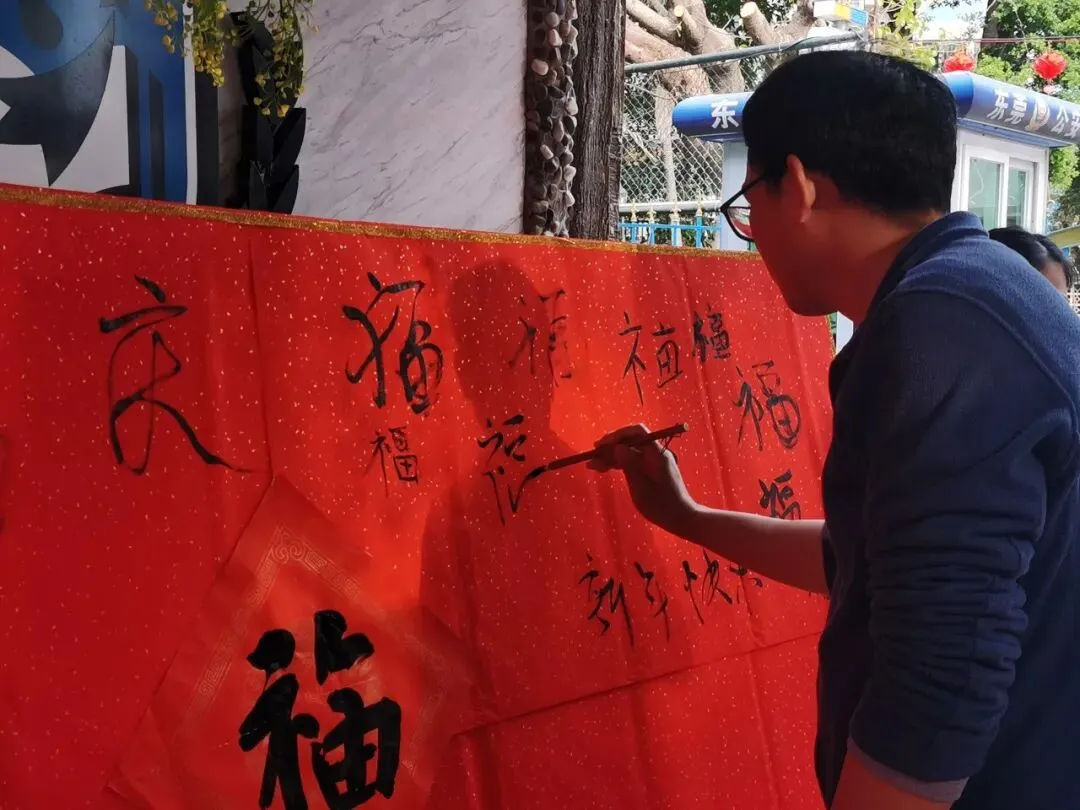 东
东莞公安
庆
福 福 福 福
福 福
福
福
新年快
福